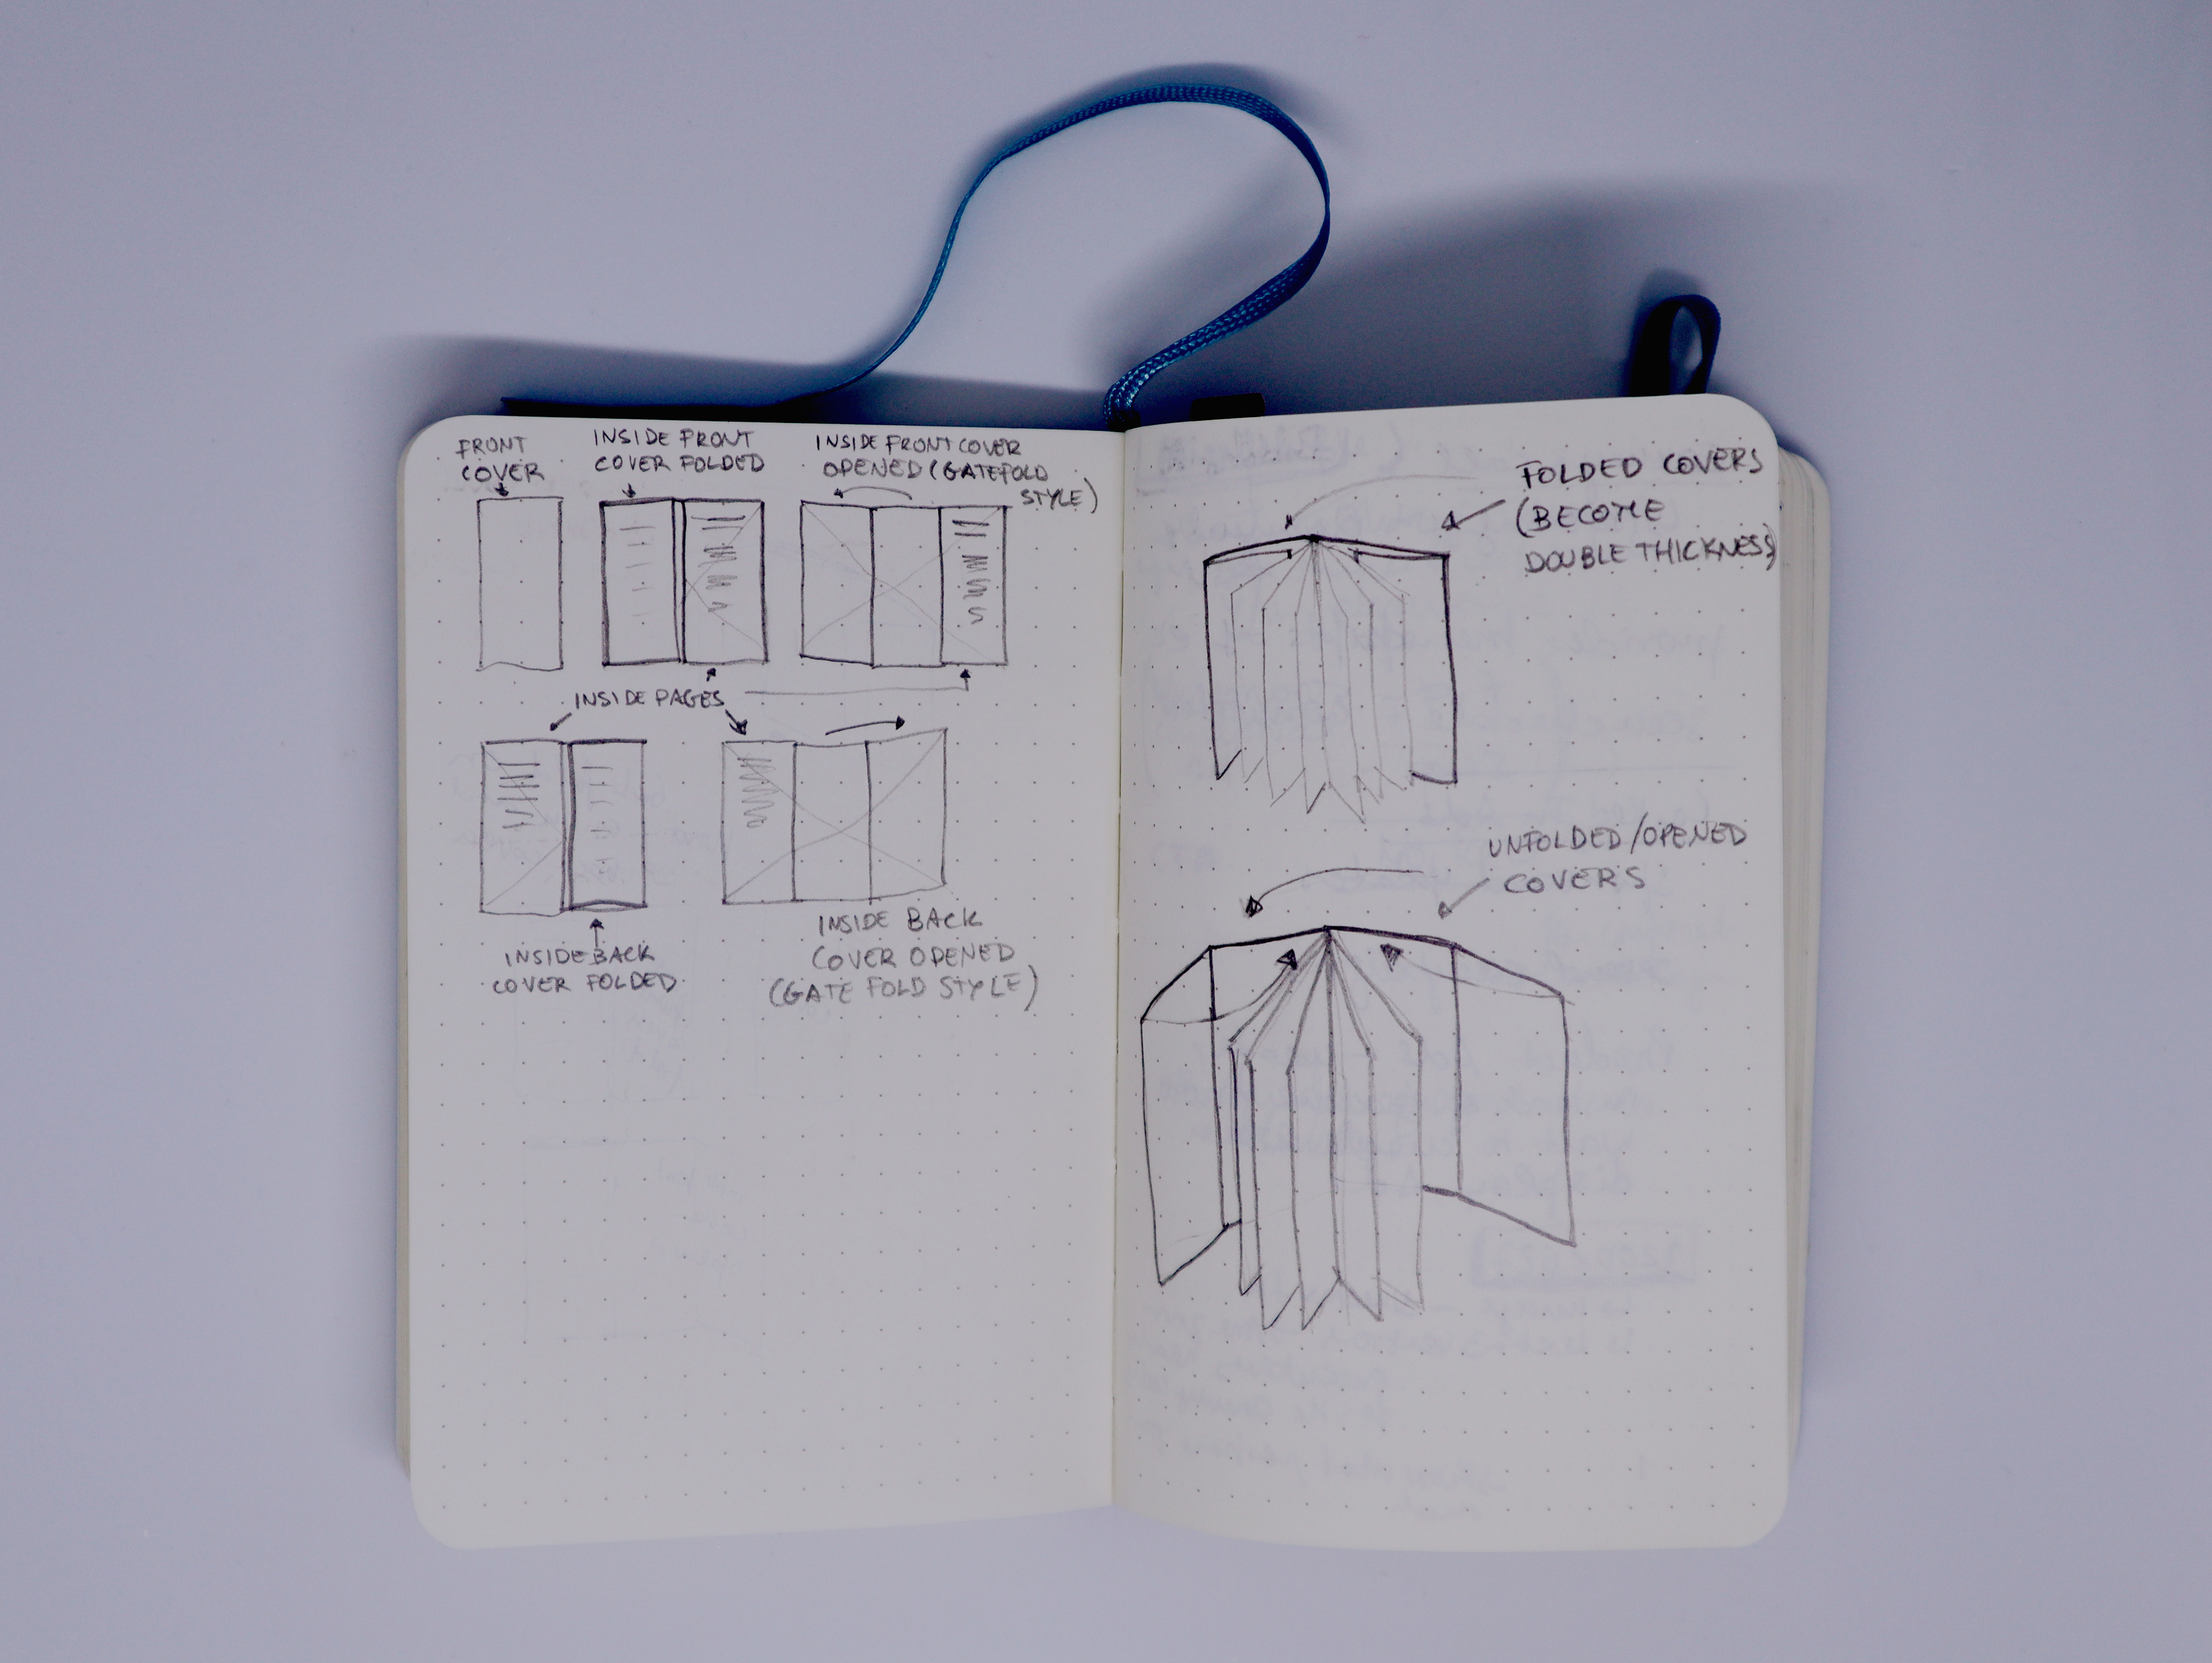 FRONT
COVER
INSIDE FRONT
COVER FOLDED
INSIDE FRONT COVER
OPENED (GATEFOLD
STYLE)
INSIDE PAGES
INSIDE BACK
COVER FOLDED
INSIDE BACK
COVER OPENED
(GATE FOLD STYLE)
FOLDED COVERS
(BECOME
DOUBLE THICKNESS)
UNFOLDED/OPENED
COVERS